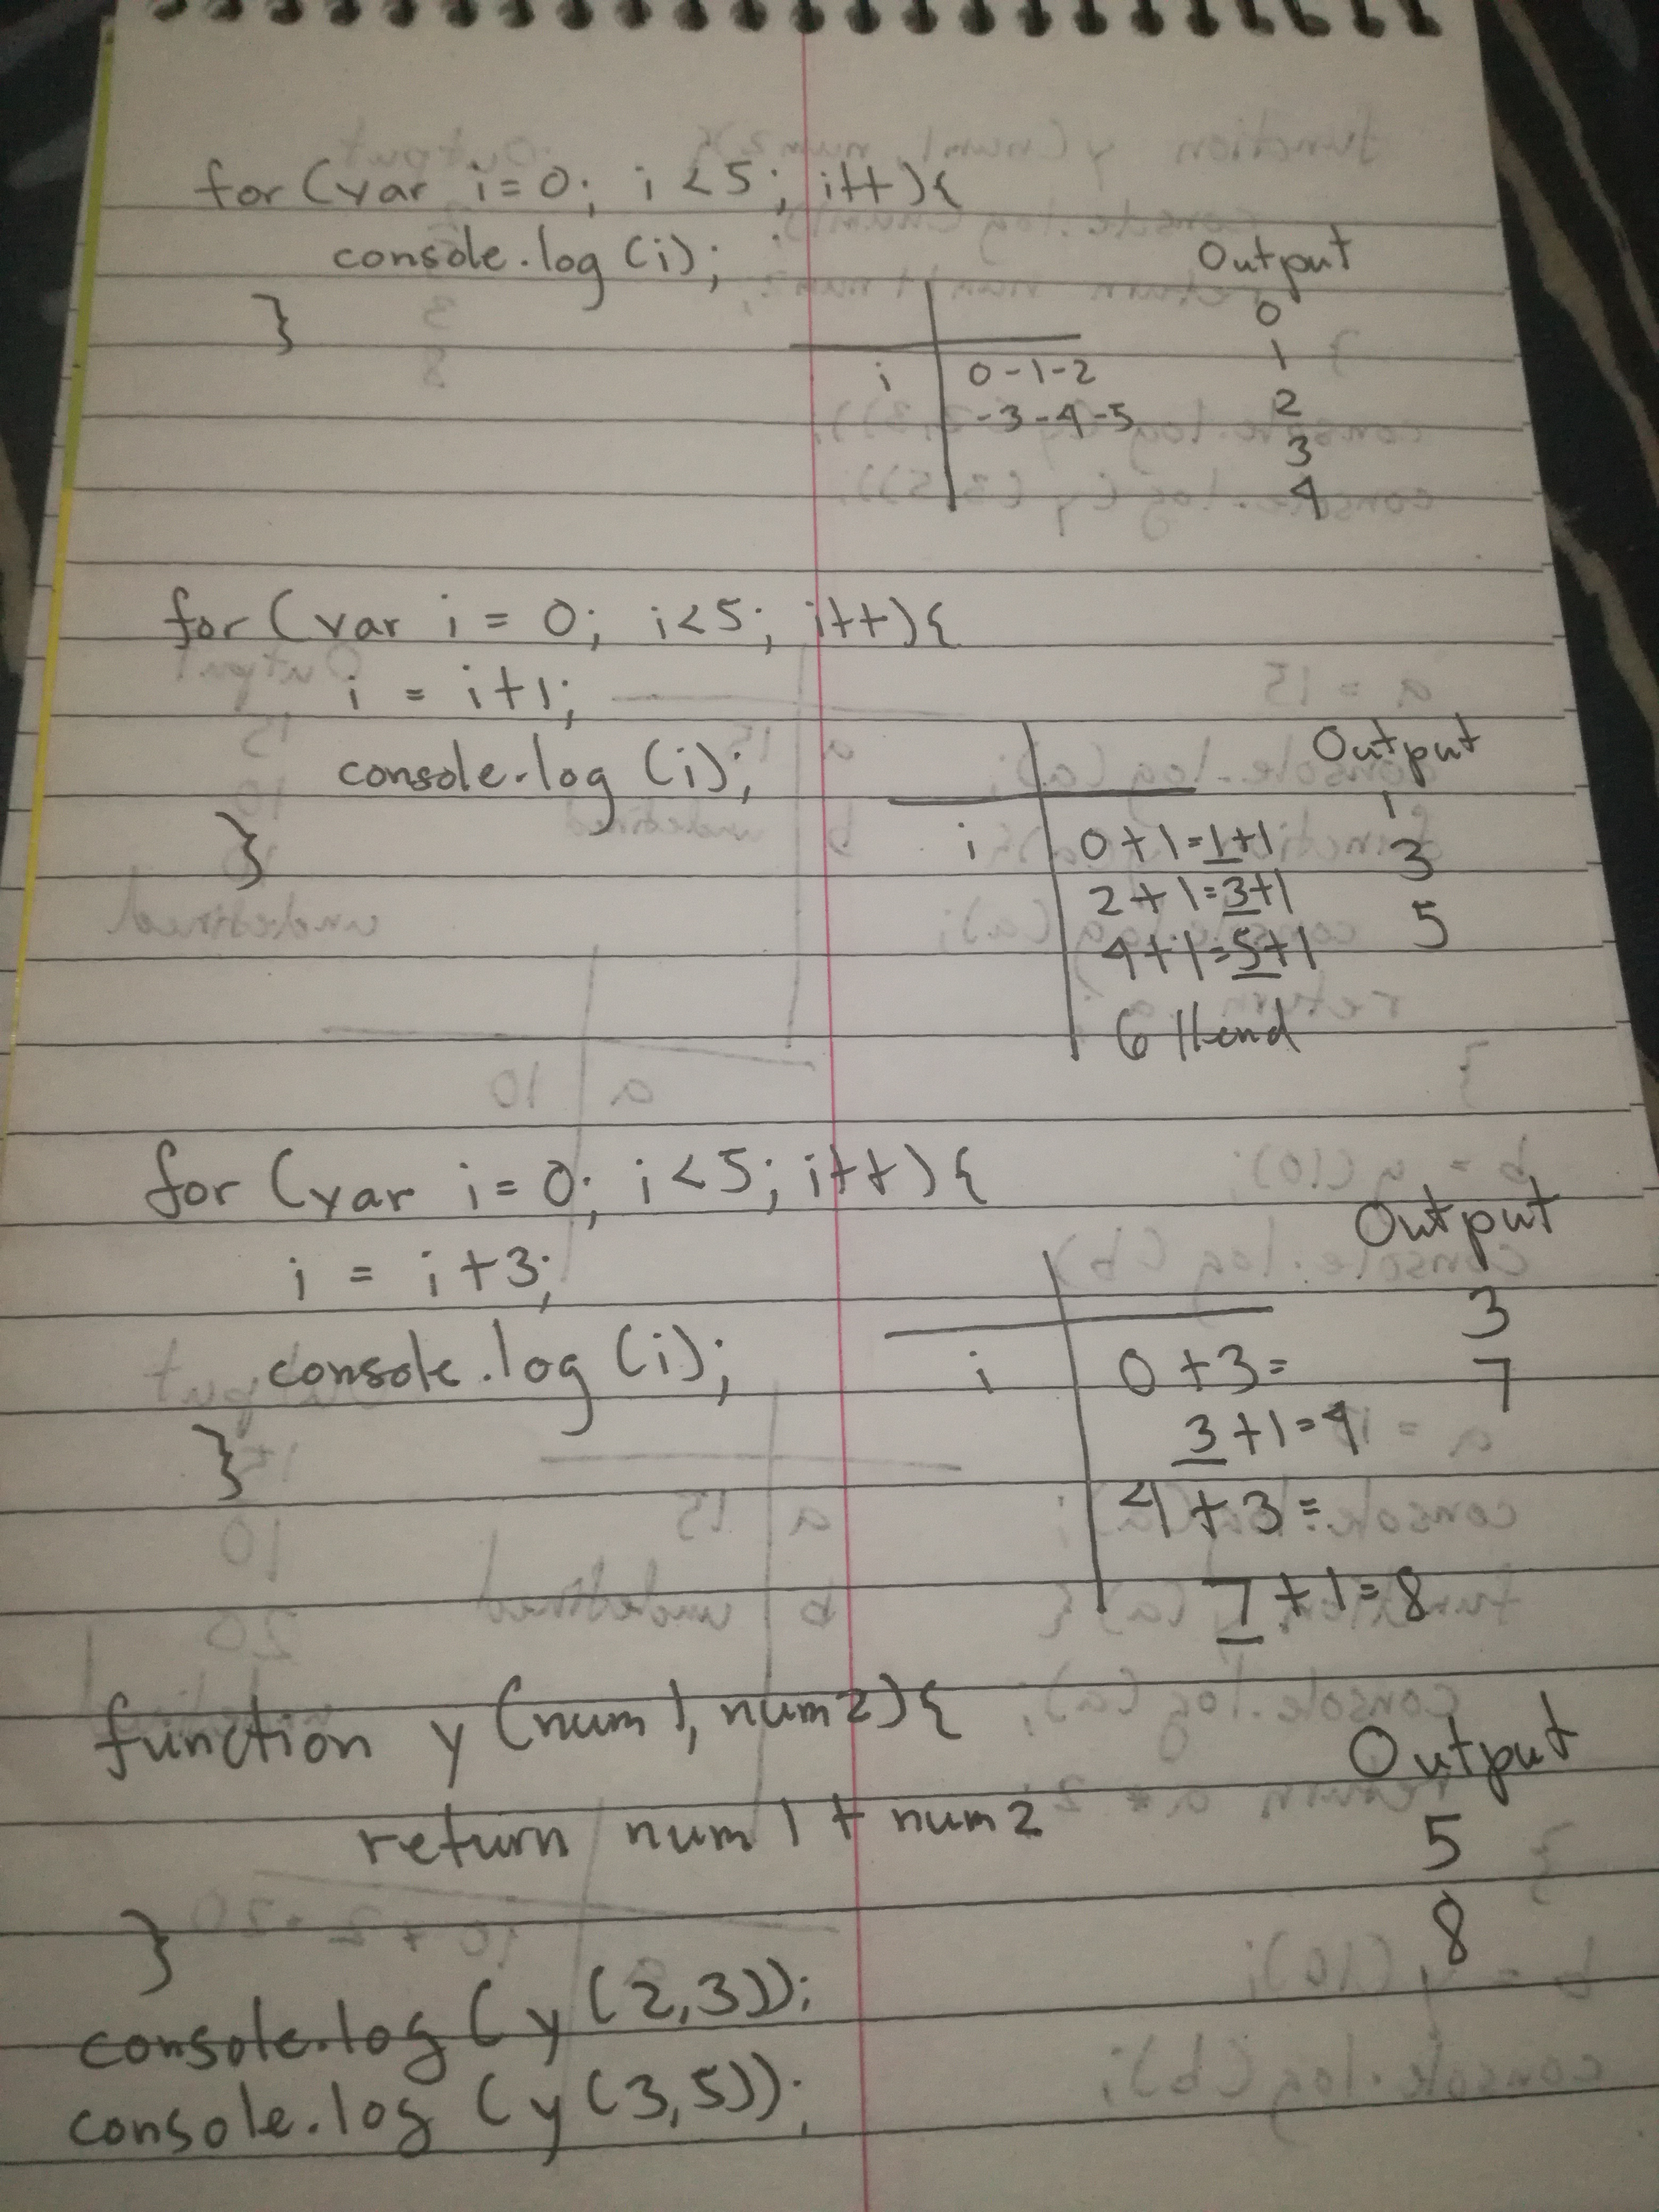 for (var i=0; i<5; i++){
console.log (i);
}
Output
0
1
2
3
4
i 0-1-2
-3-4-5
for (var i = 0; i<5; i++){
i = i+1;
console.log (i);
}
Output
1
3
5
i 0+1=1+1
2+1=3+1
4+1=5+1
6 //end
for (var i=0; i<5; i++){
i = i+3;
console.log (i);
}
Output
3
7
i 0+3=
3+1=4
4+3=
7+1=8
function y (num1, num2){
return num1 + num2
}
console.log (y(2,3));
console.log (y(3,5));
Output
5
8